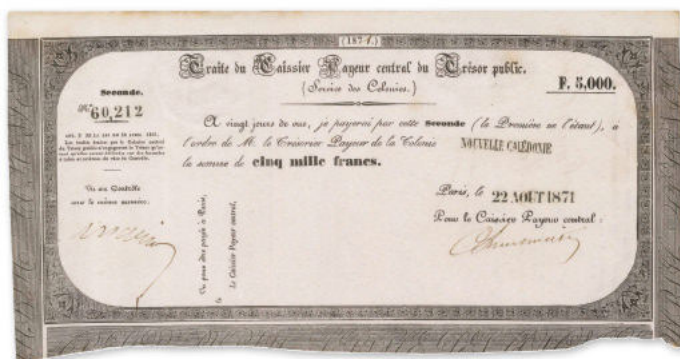 (1871.)
Traite du Caissier Payeur central du Trésor public.
(Service des Colonies.)
F. 5,000.
Seconde.
Nº 60,212
A vingt jours de vue, je payerai par cette Seconde (la Première ne l'étant), à
l'ordre de M. le Trésorier Payeur de la Colonie NOUVELLE CALÉDONIE
la somme de cinq mille francs.
Vu au Contrôle
sous le même numéro:
Paris, le 22 AOUT 1871
Pour le Caissier Payeur central:
Vu pour être payé à Paris,
le
Le Caissier Payeur central,